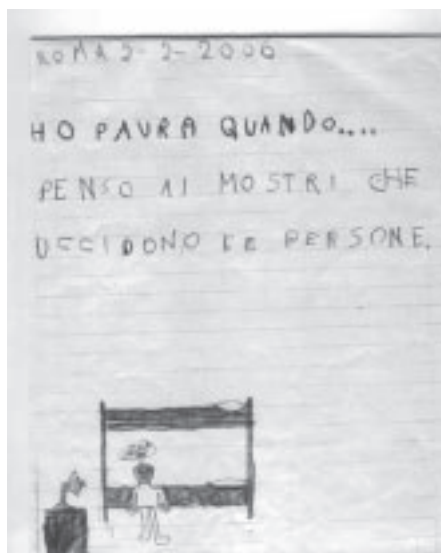 ROMA 2-2-2006
HO PAURA QUANDO....
PENSO AI MOSTRI CHE
UCCIDONO LE PERSONE.